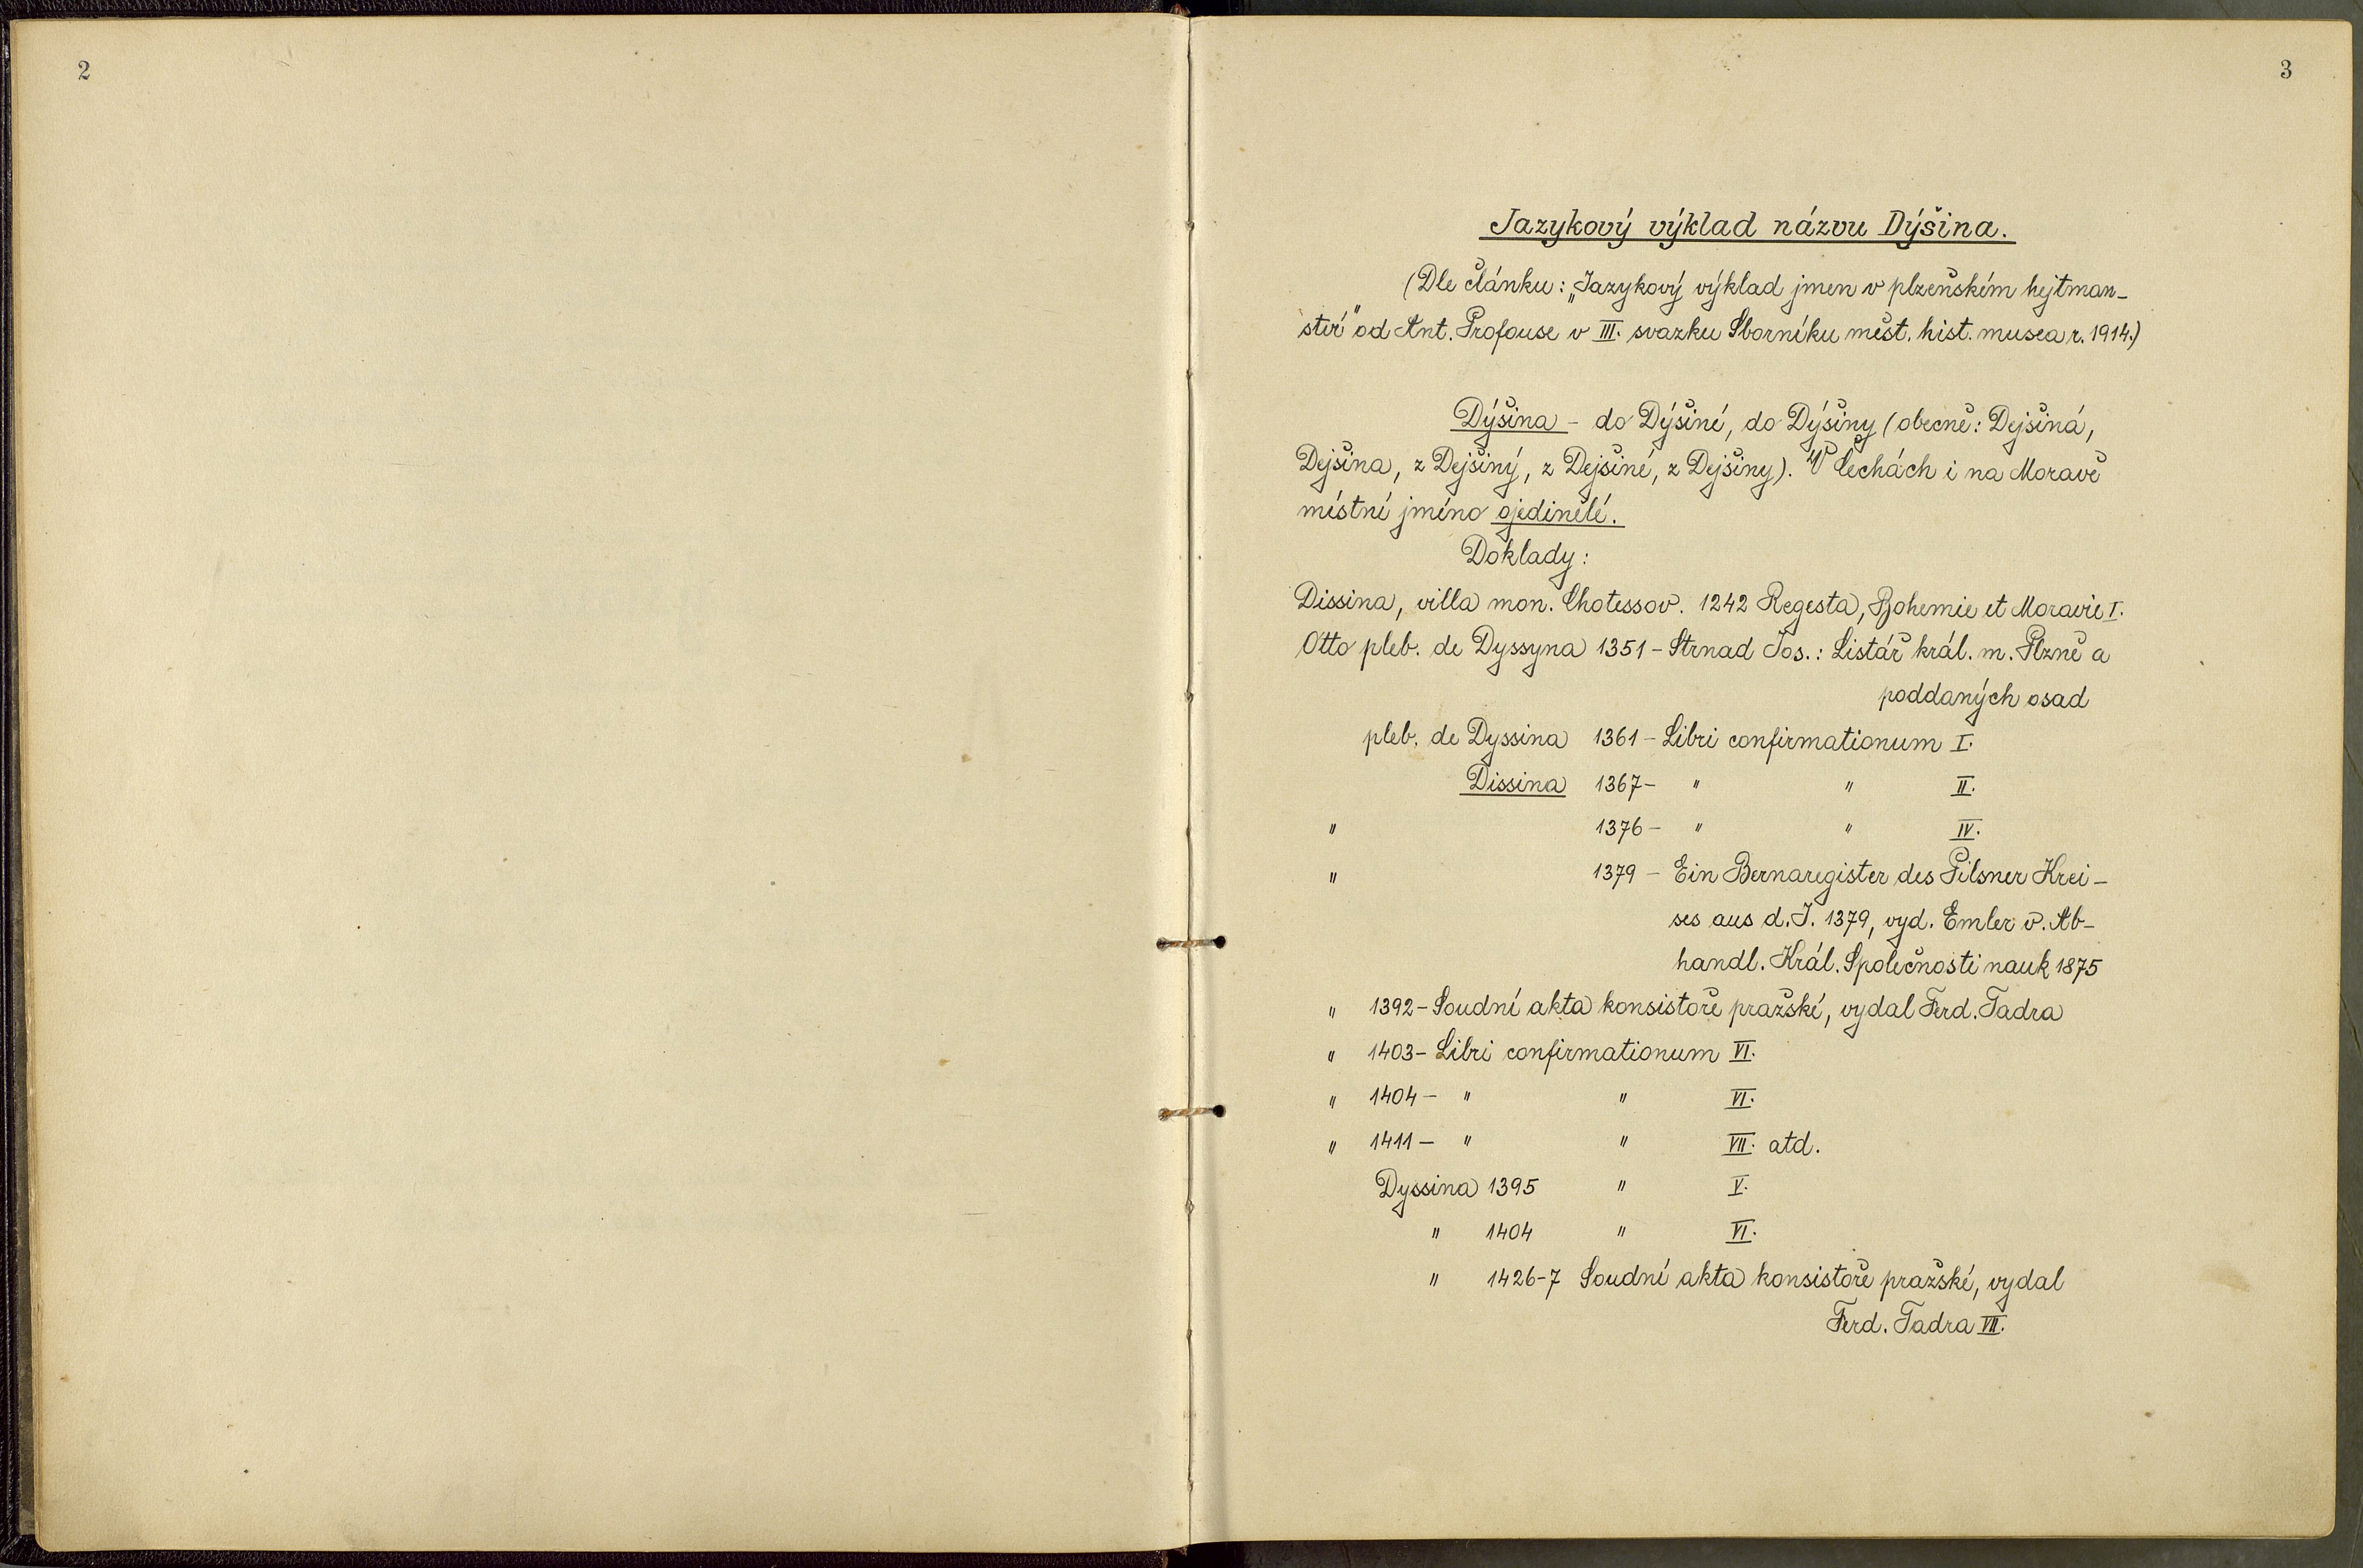 2
3
Jazykový výklad názvu Dýšina.
(Dle článku: „Jazykový výklad jmen v plzeňském hejtman-
ství" od Ant. Profouse v III. svazku Sborníku měst. hist. musea r. 1914.)
Dýšina - do Dýšiné, do Dýšiny (obecně: Dejšiná,
Dejšina, z Dejšiný, z Dejšiné, z Dejšiny). V Čechách i na Moravě
místní jméno ojedinělé.
Doklady:
Dissina, villa mon. Chotessov. 1242 Regesta, Bohemie et Moravie I.
Otto pleb. de Dyssyna 1351 - Strnad Jos.: Listář král. m. Plzně a
poddaných osad
pleb. de Dyssina 1361 - Libri confirmationum I.
Dissina 1367 - " " II.
" 1376 - " " IV.
" 1379 - Ein Bernaregister des Pilsner Krei-
ses aus d. J. 1379, vyd. Emler v. Ab-
handl. Král. Společnosti nauk 1875
" 1392 - Soudní akta konsistoře pražské, vydal Ferd. Tadra
" 1403 - Libri confirmationum VI.
" 1404 - " " VI.
" 1411 - " " VII. atd.
Dyssina 1395 " V.
" 1404 " VI.
" 1426-7 Soudní akta konsistoře pražské, vydal
Ferd. Tadra VII.